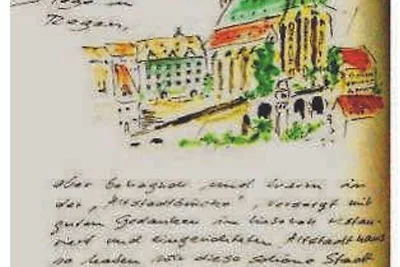 Regen,
aber bewegende und freim in
der „Altstadtbrücke", versorgt mit
guten Gedanken im liebevoll restau-
riert und eingerichteten Altstadthaus
so haben wir diese schöne Stadt